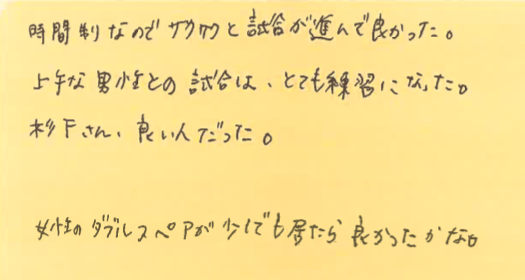 時間制なのでサクサクと試合が進んで良かった。
上手な男性との試合は、とても練習になった。
杉下さん、良い人だった。
女性のダブルスペアが少しでも居たら良かったかな。